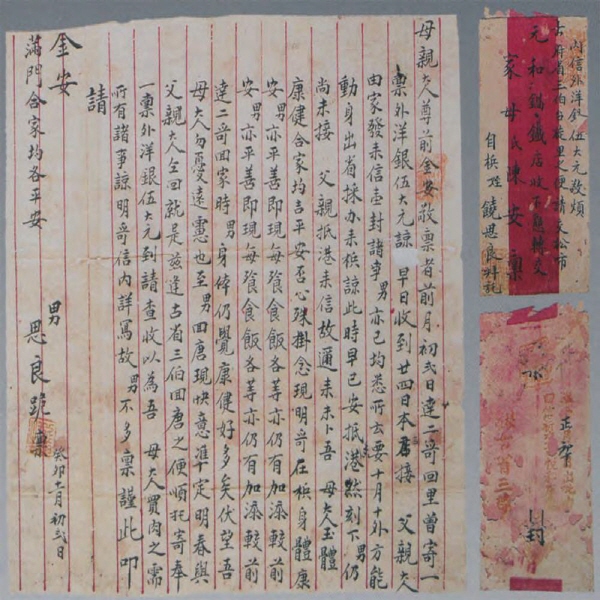 母親大人尊前金安敬禀者前月初弍日達二哥回里曾寄一
禀外洋銀伍大元諒 早日收到廿四日本 接 父親大人
由家發來信壹封諸事 男亦已均悉所云要十月十外方能
動身出省採办來槟諒此時早已安抵港然刻下男仍
尚未接 父親抵港來信故通來未卜吾 母大人玉體
康健合家均吉平安否心殊掛念現明哥在槟身體康
安男亦平善即現每飱食飯各等亦仍有加添較前
安男亦平善即現每飱食飯各等亦仍有加添較前
達二哥回家時男身体仍覺康健好多矣伏望吾
母大人勿憂遠慮也至男回唐現快意準定明春與
父親大人仝回就是茲逢占省三伯回唐之便順托寄奉
一禀外洋銀伍大元到請查收以為吾 母大人買肉之需
所有諸事諒明哥信內詳寫故男不多禀謹此叩
請
金安
滿門合家均各平安
男
思良跪禀
癸卯十一月初弍日
內信外洋銀伍大元敬煩
占省三伯台旋里之便請交松市
元和 鐵店收下懇轉交
家母氏陳安禀
自槟 饒思良拜託
正
封